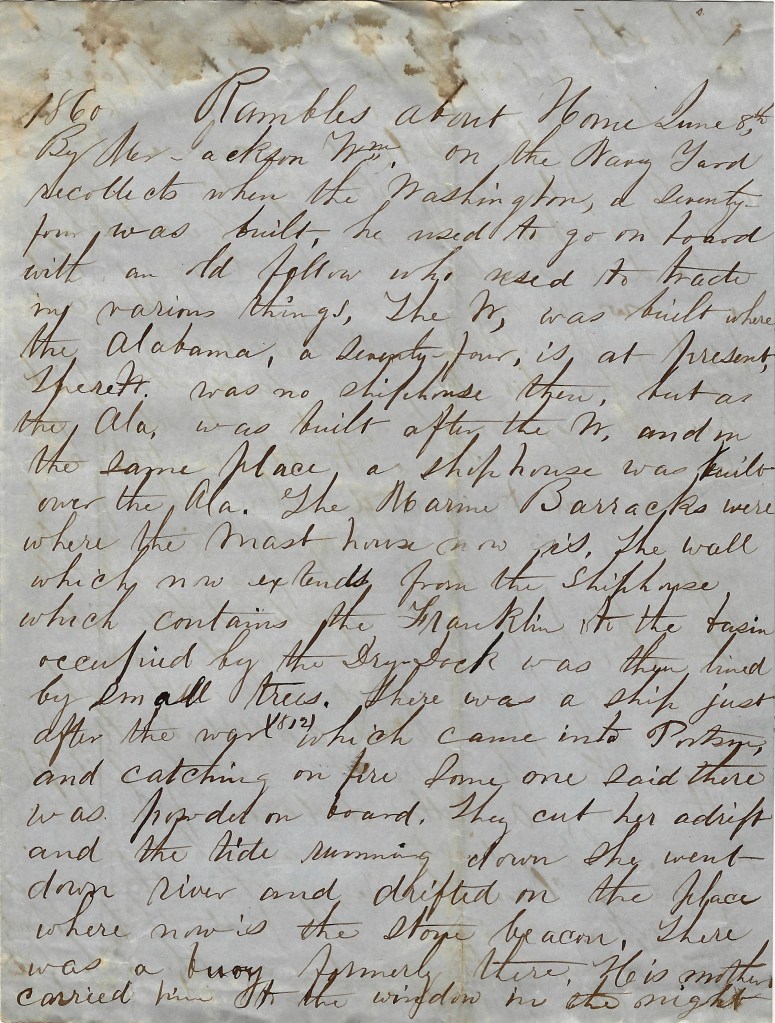 1860 Rambles about Home June 8th,
By Mr Jackson Wm. on the Navy Yard
recollects when the Washington, a seventy-
four was built, he used to go on board
with an old fellow who used to trade
in various things, The W, was built where
the Alabama, a seventy-four, is, at present,
There was no shiphouse then, but as
the Ala, was built after the W, and in
the same place a shiphouse was built
over the Ala. The Marine Barracks were
where the Mast house now is, The wall
which now extends from the Shiphouse
which contains the Franklin to the basin
occupied by the Dry-Dock was then lined
by small trees. There was a ship just
after the war (1812) which came into Portsm,
and catching on fire some one said there
was powder on board. They cut her adrift
and the tide running down she went
down river and drifted on the place
where now is the stone beacon. There
was a buoy formerly there. His mother
carried him to the window in the night